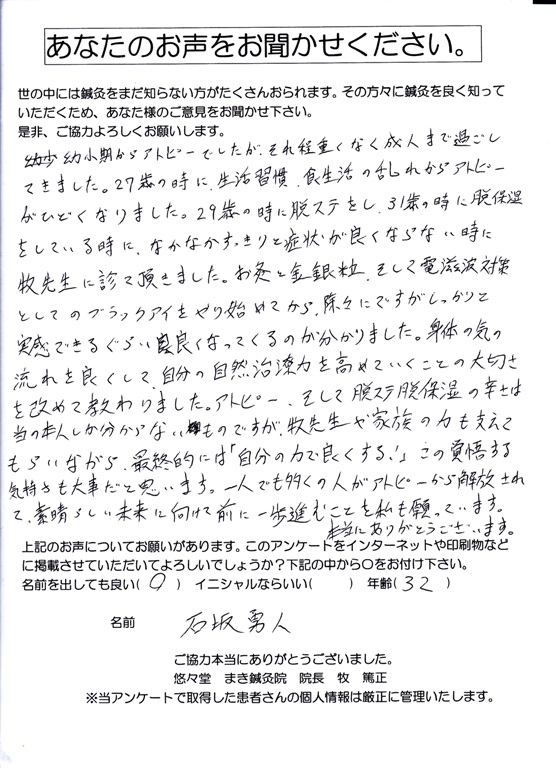 あなたのお声をお聞かせください。
世の中には鍼灸をまだ知らない方がたくさんおられます。その方々に鍼灸を良く知って
いただくため、あなた様のご意見をお聞かせ下さい。
是非、ご協力よろしくお願いします。
幼少幼小期からアトピーでしたが、それ程重くなく成人まで過ごし
てきました。27歳の時に、生活習慣、食生活の乱れからアトピー
がひどくなりました。29歳の時に脱ステをし、31歳の時に脱保湿
をしている時に、なかなかすっきりと症状が良くならない時に
牧先生に診て頂きました。お灸と金銀粒、そして電滋波対策
としてのブラックアイをやり始めてから、除々にですがしっかりと
実感できるぐらい良くなってくるのが分かりました。身体の気の
流れを良くして、自分の自然治療力を高めていくことの大切さ
を改めて教わりました。アトピー、そして脱ステ脱保湿の辛さは
当の本人しか分からないものですが、牧先生や家族の力も支えて
もらいながら、最終的には「自分の力で良くする！」この覚悟する
気持ちも大事だと思います。一人でも多くの人がアトピーから解放され
て、素晴らしい未来に向けて前に一歩進むことを私も願っています。
本当にありがとうございます。
上記のお声についてお願いがあります。このアンケートをインターネットや印刷物など
に掲載させていただいてよろしいでしょうか？下記の中から○をお付け下さい。
名前を出しても良い(○) イニシャルならいい( ) 年齢(32)
名前 石坂勇人
ご協力本当にありがとうございました。
悠々堂 まき鍼灸院 院長 牧 篤正
※当アンケートで取得した患者さんの個人情報は厳正に管理いたします。